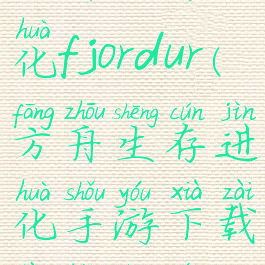 huà
化fjordur(
fāng zhōu shēng cún jìn
方舟生存进
huà shǒu yóu xià zài
化手游下载